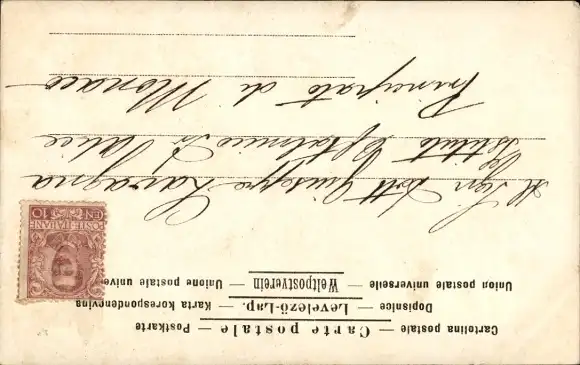 Cartolina postale — Carte postale — Postkarte
Dopisnice — Levelező-Lap. — Karta korespondencyjna
Union postale universelle — Weltpostverein — Unione postale unive
POSTE ITALIANE
CEN 10
Al Sign Dott Giuseppe Saragna
Istituto Oftalmico
Principato di Monaco